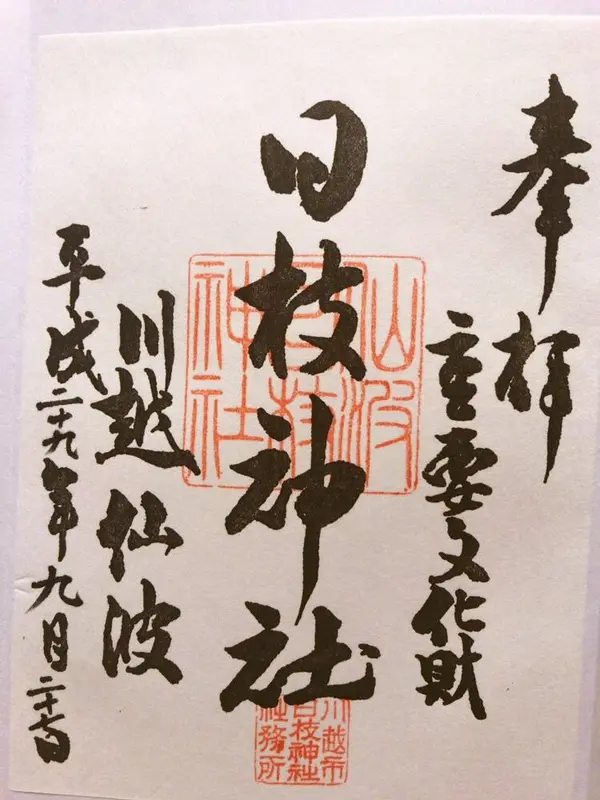 奉拝
重要文化財
日枝神社
川越仙波
平成二十九年九月二十七日
仙波
日枝
神社
川越市
日枝神社
社務所